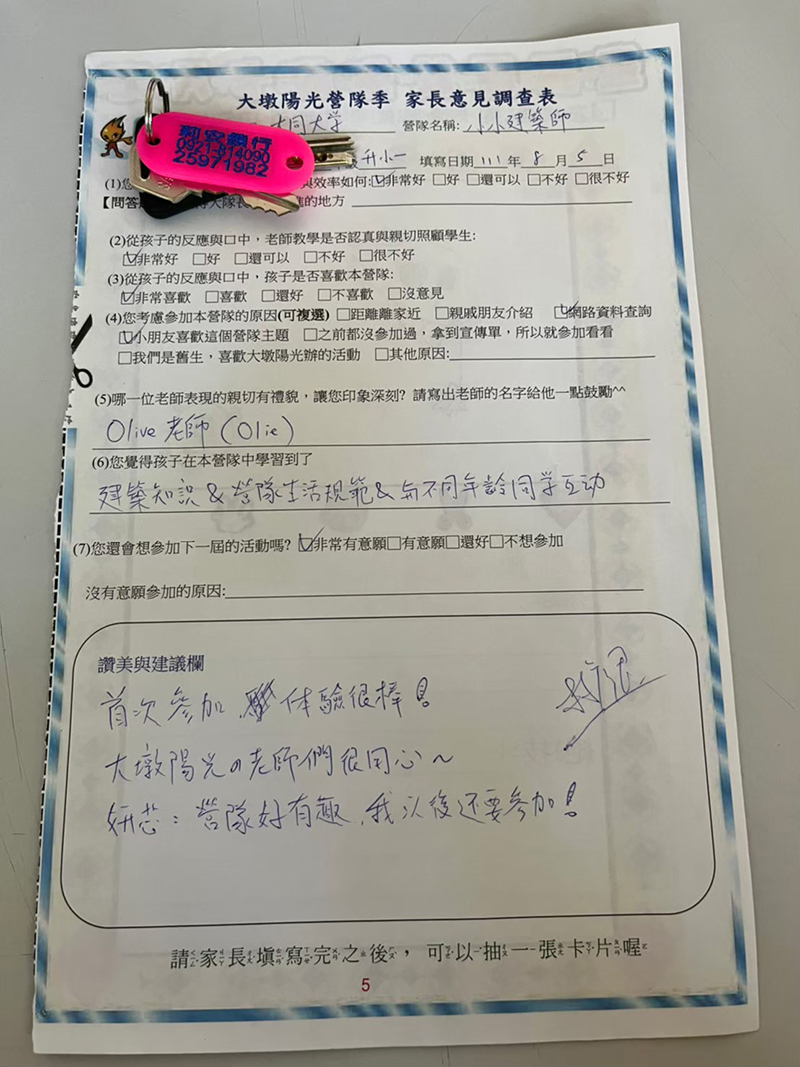 大墩陽光營隊季 家長意見調查表
大同大學 營隊名稱:小小建築師
鎖印行
0921-814090
25971982
升小一 填寫日期 111 年 8 月 5 日
(1)您 與效率如何:☑非常好 □好 □還可以 □不好 □很不好
【問答 大隊長 進的地方
(2)從孩子的反應與口中,老師教學是否認真與親切照顧學生:
☑非常好 □好 □還可以 □不好 □很不好
(3)從孩子的反應與口中,孩子是否喜歡本營隊:
☑非常喜歡 □喜歡 □還好 □不喜歡 □沒意見
(4)您考慮參加本營隊的原因(可複選) □距離離家近 □親戚朋友介紹 ☑網路資料查詢
☑小朋友喜歡這個營隊主題 □之前都沒參加過,拿到宣傳單,所以就參加看看
□我們是舊生,喜歡大墩陽光辦的活動 □其他原因:
(5)哪一位老師表現的親切有禮貌,讓您印象深刻? 請寫出老師的名字給他一點鼓勵^^
Olive 老師 (Olie)
(6)您覺得孩子在本營隊中學習到了
建築知識 & 營隊生活規範 & 與不同年齡同學互動
(7)您還會想參加下一屆的活動嗎? ☑非常有意願□有意願□還好□不想參加
沒有意願參加的原因:
讚美與建議欄
首次參加 體驗很棒!
大墩陽光の老師們很用心~
妍芯:營隊好有趣,我以後還要參加!
請家長填寫完之後,可以抽一張卡片喔
5